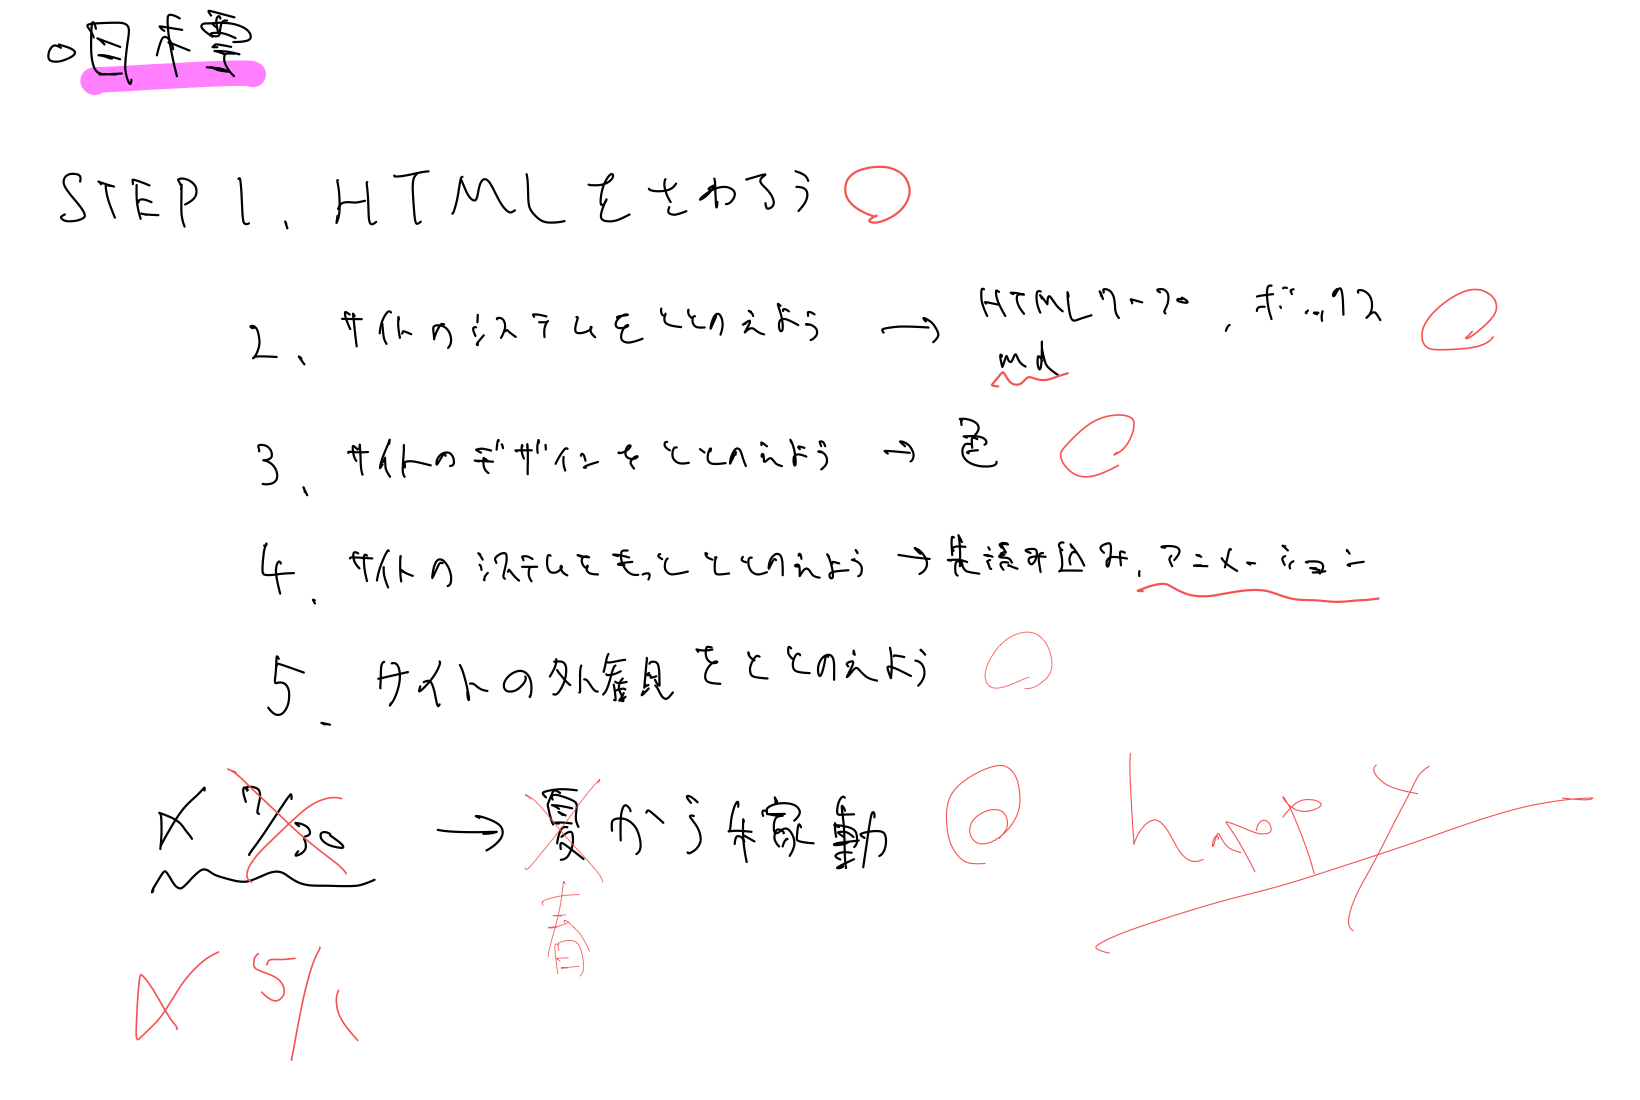 ○目標
STEP1. HTMLをさわろう
2、サイトのシステムをととのえよう → HTMLワープ、ボックス
md
3、サイトのデザインをととのえよう → 色
4、サイトのシステムをもっとととのえよう → 先読み込み、アニメーション
5、サイトの外観見をととのえよう
〆 7/30 → 夏から稼動 happy
春
〆 5/1